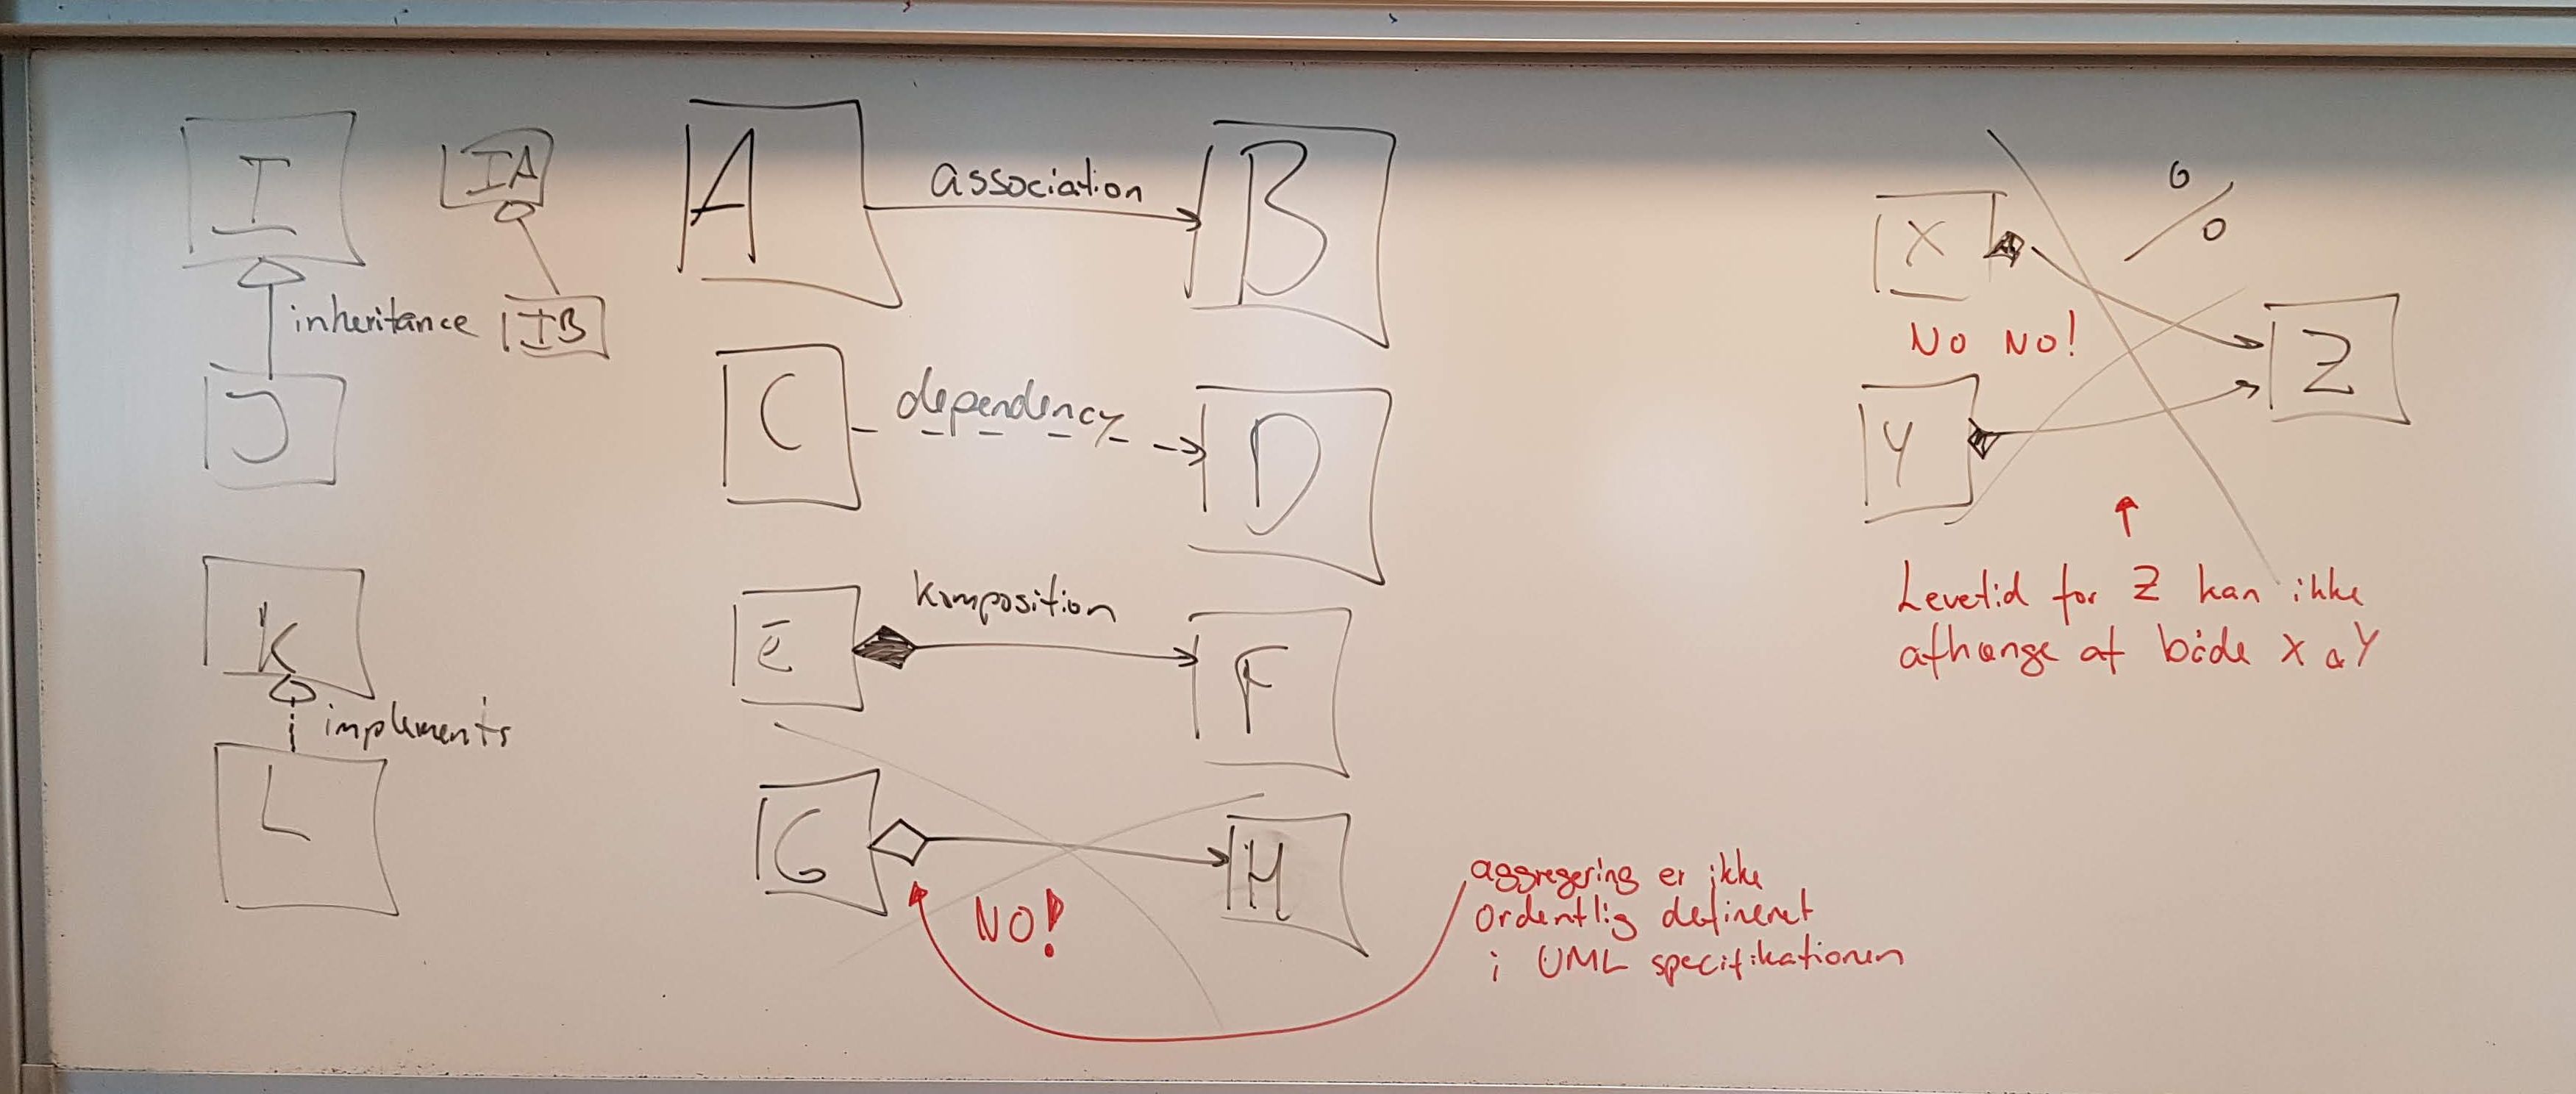 I
IA
inheritance
IB
J
K
implements
L
A
association
B
C
dependency
D
E
komposition
F
G
H
NO!
aggregering er ikke
ordentlig defineret
i UML specifikationen
%
X
NO NO!
Y
Z
Levetid for Z kan ikke
afhænge af både X & Y